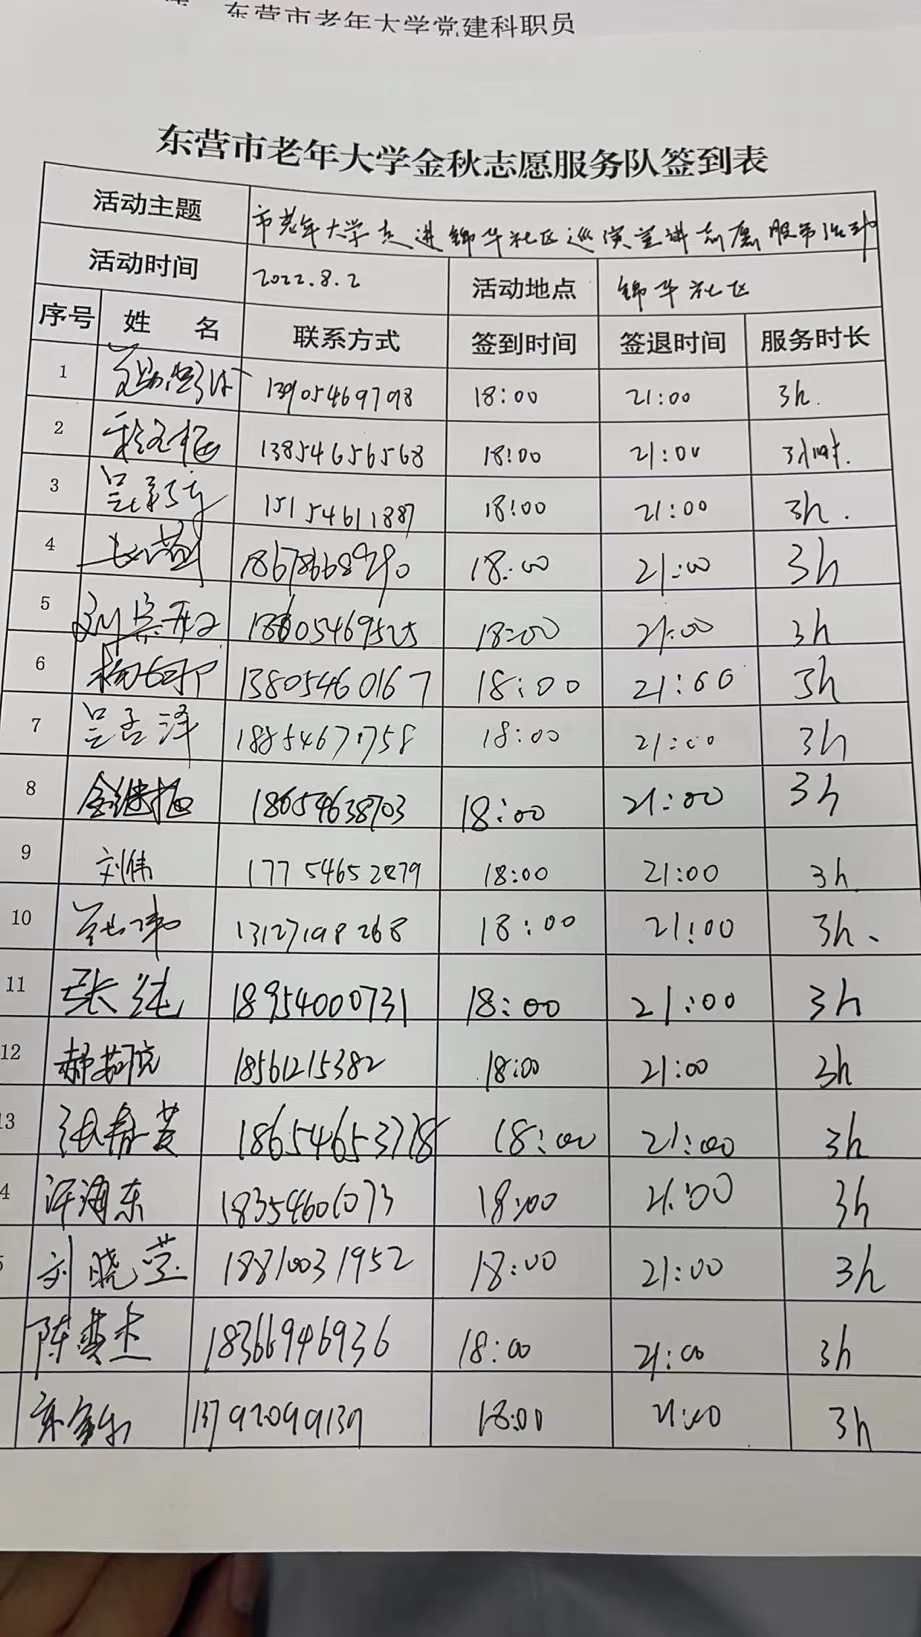 东营市老年大学党建科职员
东营市老年大学金秋志愿服务队签到表
活动主题 市老年大学走进锦华社区巡演宣讲志愿服务活动
活动时间 2022.8.2 活动地点 锦华社区
序号 姓 名 联系方式 签到时间 签退时间 服务时长
1 13905469798 18:00 21:00 3h.
2 13854656568 18:00 21:00 3小时.
3 15154611887 18:00 21:00 3h.
4 18:00 21:00 3h
5 18:00 21:00 3h
6 13805460167 18:00 21:00 3h
7 吴孟泽 18:00 21:00 3h
8 18654638703 18:00 21:00 3h
9 刘伟 17754652879 18:00 21:00 3h
10 13127198268 18:00 21:00 3h、
11 张纯 18954000731 18:00 21:00 3h
12 18561215382 18:00 21:00 3h
13 张春芳 18:00 21:00 3h
4 许海东 18354601073 18:00 21:00 3h
5 刘晓莹 18810031952 18:00 21:00 3h
陈英杰 18366946936 18:00 21:00 3h
13792099139 18:00 21:00 3h